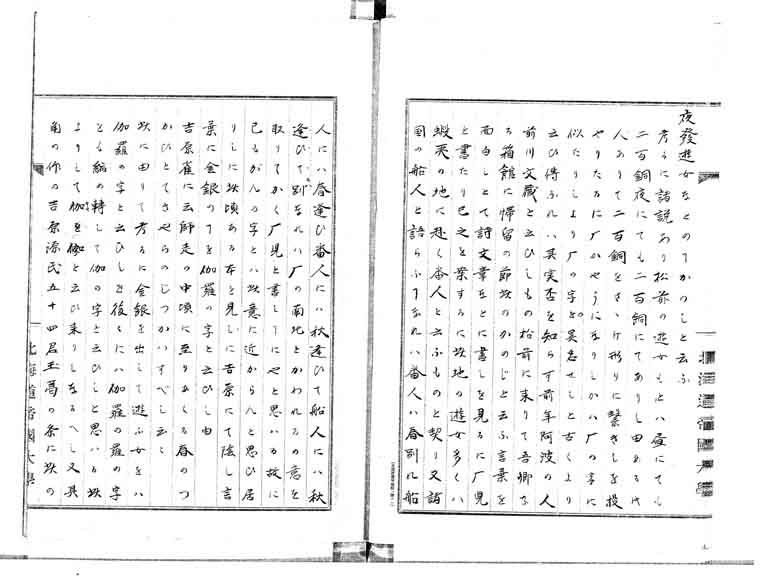 夜發遊女などのてかのじと云ふ
考るに諸説あり松前の遊女もとハ昼にても
二百銅夜にても二百銅にてありし由ある時
人ありて二百銅をさゝげ形りに繋きしを投
やりたるに厂かやうになりしかハ厂の字に
似たりしより厂の字と異名せしと古くより
云ひ傳ふれハ其実否を知らす前年阿波の人
前川文蔵と云ひしもの松前に来りて吾郷な
る箱館に帰留の節坎のかのじと云ふ言葉を
面白しとて詩文章などに書しを見るに厂児
と書たり已之を案するに坎地の遊女多くハ
蝦夷の地に赴く番人と云ふものと契り又諸
国の船人と語らふ事なれハ番人ハ春別れ船
人にハ春逢ひ番人にハ秋逢ひて船人にハ秋
逢ひて別なれハ厂の南北とかわれるの意を
取りてかく厂児と書してにやと思いる故に
已もがんの字とハ坎意に近からんと思ひ居
りしに坎頃ある本を見しに吉原にて隠し言
葉に金銀の事を伽羅の字と云ひし由
吉原雀に云師走の中頃に至りあくる春のつ
かひとてきやらのじつかいすべし云々
坎に由りて考るに金銀を出して遊ふ女をハ
伽羅の字と云ひしを後々にハ伽羅の羅の字
とる編の轉して伽の字と云ひしと思いる坎
よりして伽を伽と云ひ来りしなるへし又其
角の作の吉原源氏五十四君玉葛の条に坎の
北海道帝國大學
北海道帝國大學